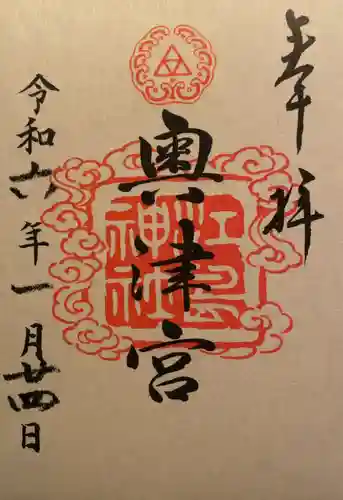 奉拝
奥津宮
江島神社
令和六年一月廿四日